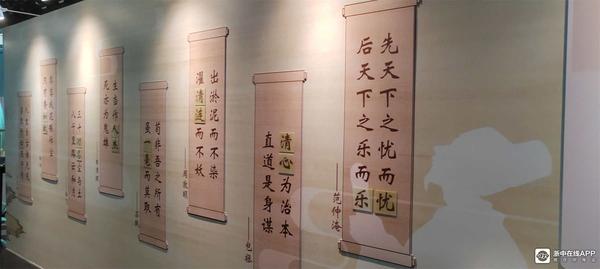 先天下之忧而忧
后天下之乐而乐
——范仲淹
清心为治本
直道是身谋
——包拯
出淤泥而不染
濯清涟而不妖
——周敦颐
苟非吾之所有
虽一毫而莫取
——苏轼
生当作人杰
死亦为鬼雄
三十功名尘与土
八千里路云和月
浙中在线APP